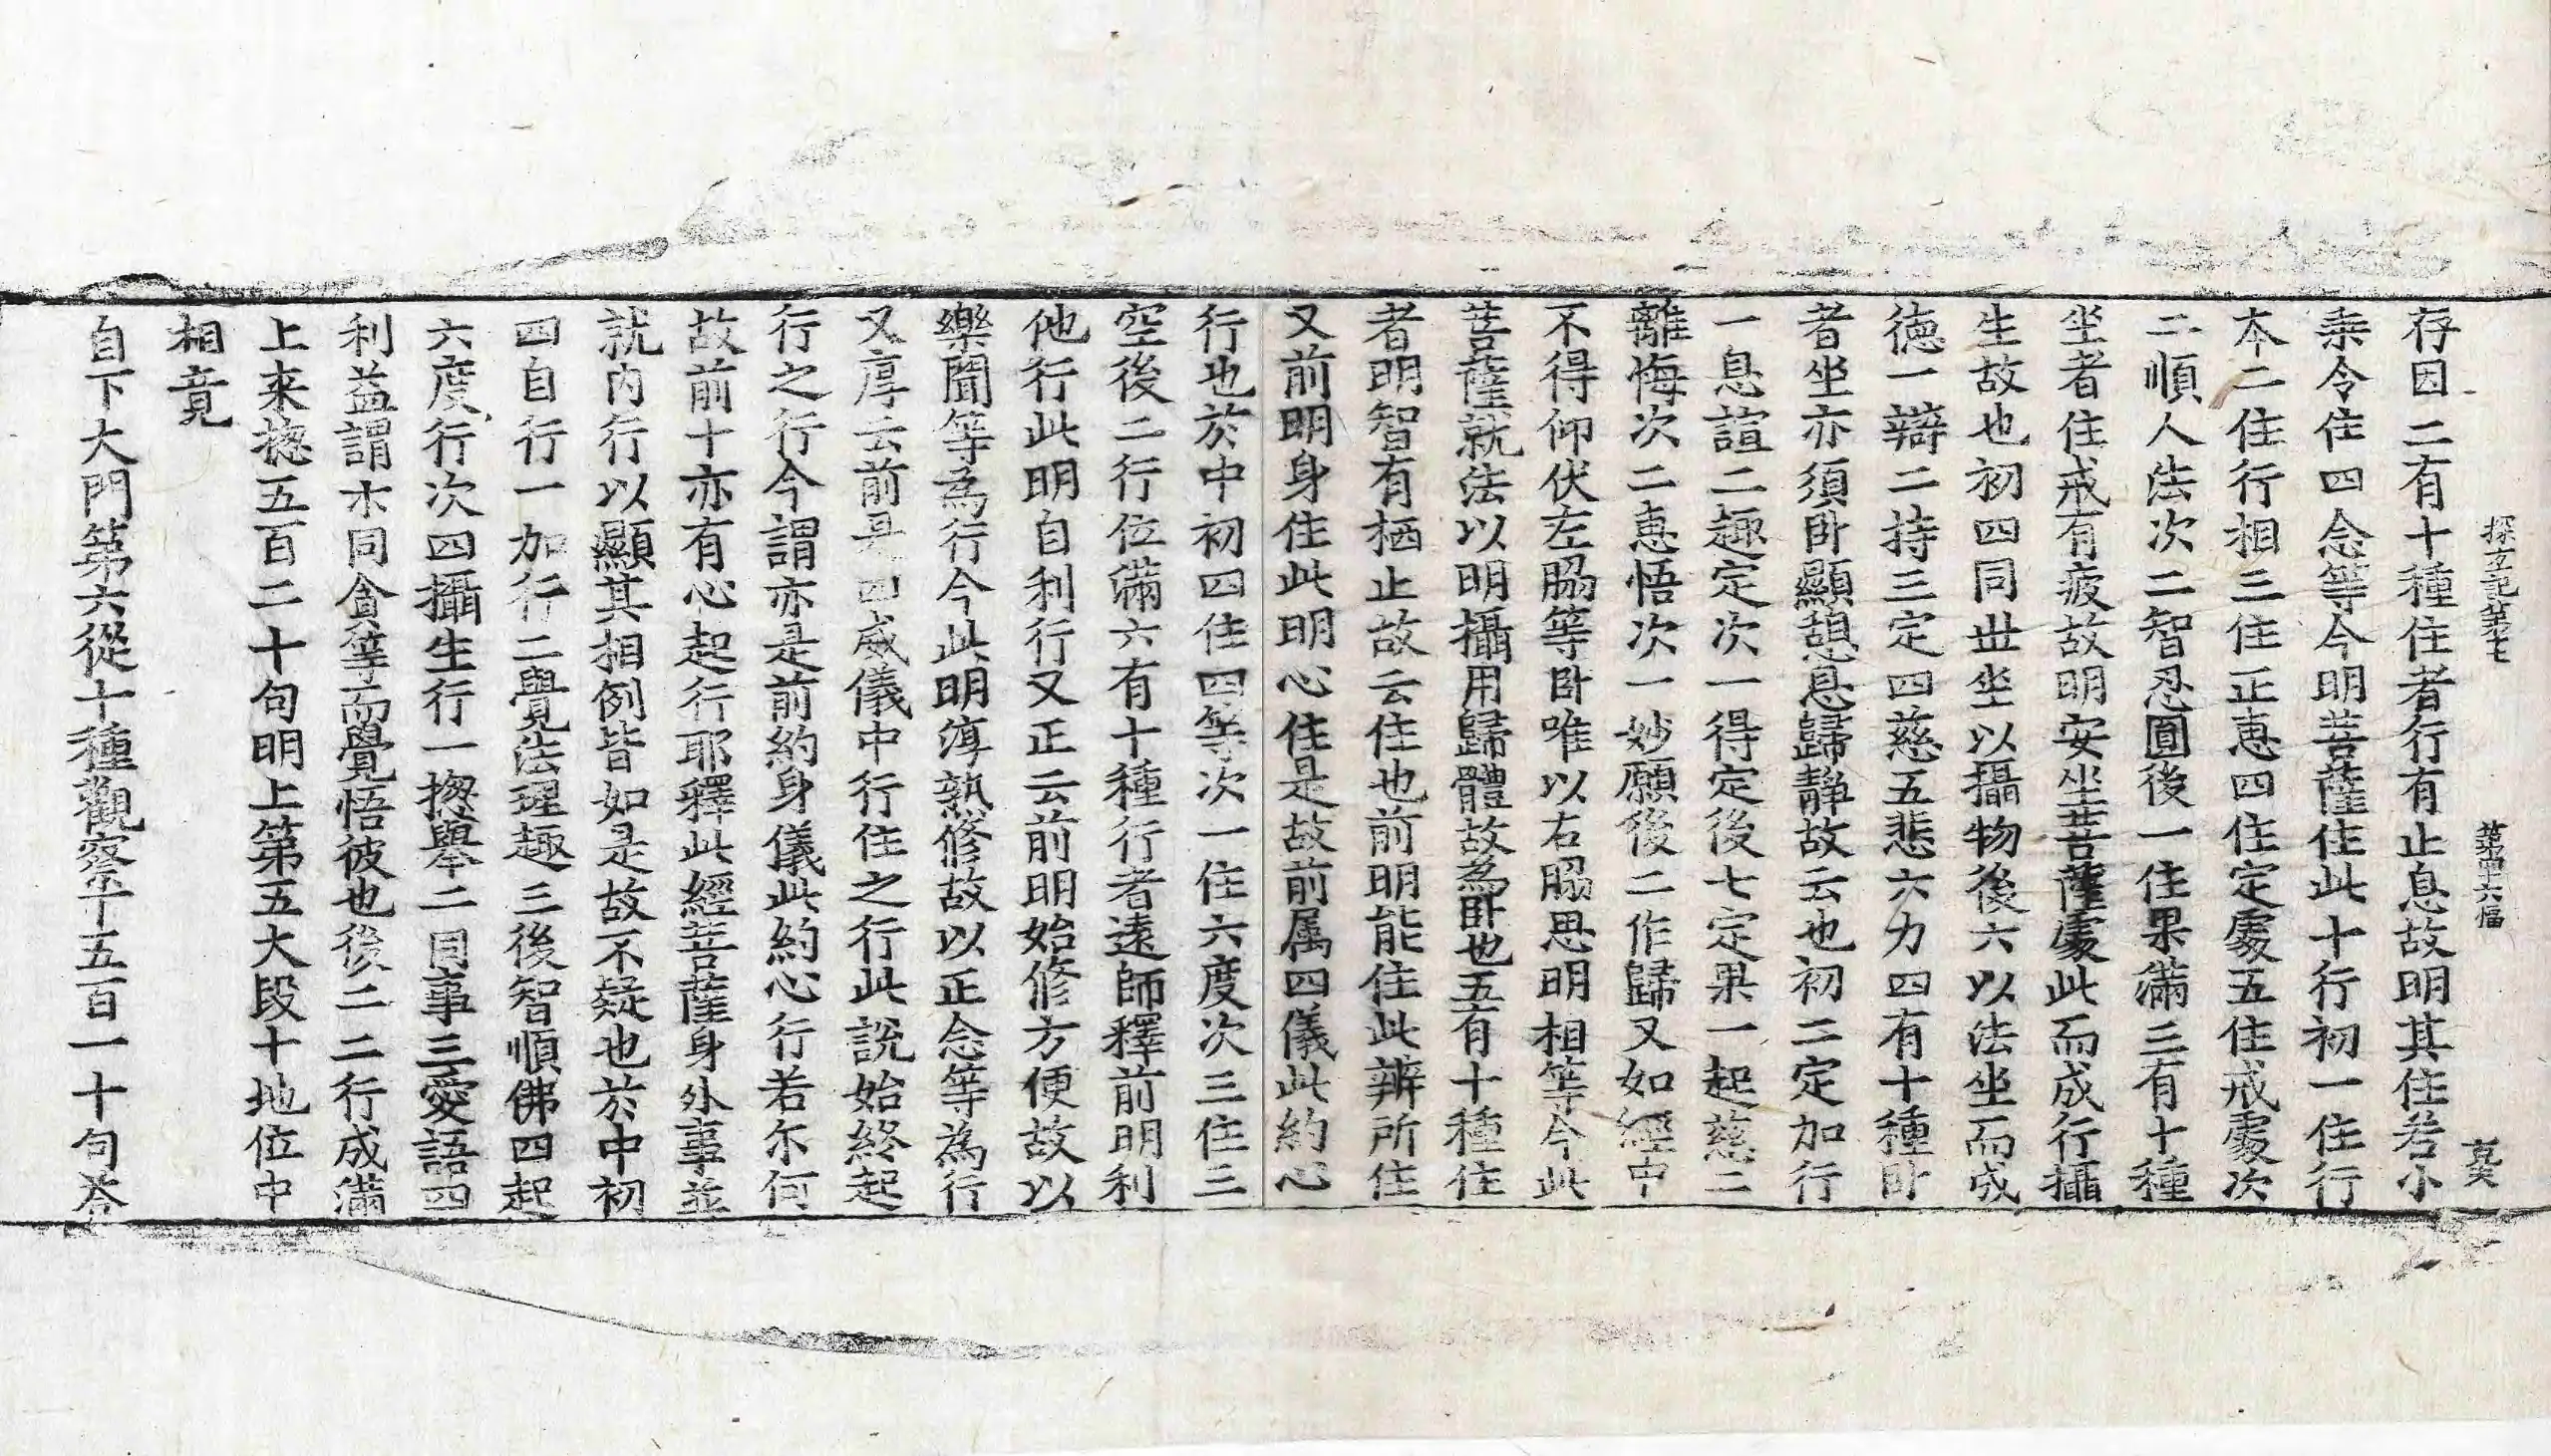 探玄記第七 第四十六幅 更
存因二有十種住者行有止息故明其住若小
乘令住四念等今明菩薩住此十行初一住行
本二住行相三住正惠四住定處五住戒處次
二順人法次二智忍圓後一住果滿三有十種
坐者住戒有疲故明安坐菩薩處此而成行攝
生故也初四同世坐以攝物後六以法坐而成
德一辯二持三定四慈五悲六力四有十種卧
者坐亦須卧顯憇息歸静故云也初二定加行
一息諠二趣定次一得定後七定果一起慈二
離悔次二惠悟次一妙願後二作歸又如經中
不得仰伏左脇等卧唯以右脇思明相等今此
菩薩就法以明攝用歸體故為卧也五有十種住
者明智有栖止故云住也前明能住此辨所住
又前明身住此明心住是故前属四儀此約心
行也於中初四住四等次一住六度次三住三
空後二行位滿六有十種行者遠師釋前明利
他行此明自利行又正云前明始修方便故以
樂聞等為行今此明淳熟修故以正念等為行
又厚云前是四威儀中行住之行此說始終起
行之行今謂亦是前約身儀此約心行若尓何
故前十亦有心起行耶釋此經菩薩身外事並
就内行以顯其相例皆如是故不疑也於中初
四自行一加行二覺法理趣三後智順佛四起
六度行次四攝生行一揔舉二同事三愛語四
利益謂示同貪等而覺悟彼也後二二行成滿
上来揔五百二十句明上第五大段十地位中
相竟
自下大門第六從十種觀察下五百一十句荅